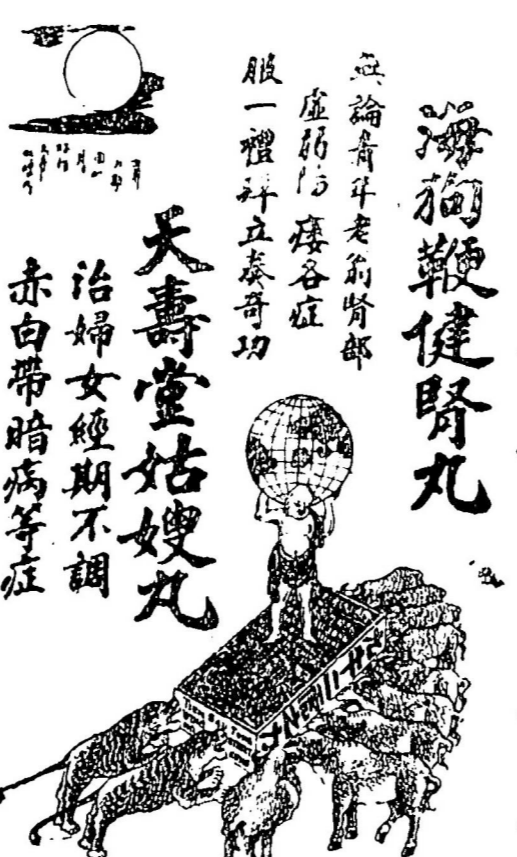 海狗鞭健腎丸
無論青年老翁腎部
虛弱防痿各症
服一禮拜立奏奇功
天壽堂姑嫂丸
治婦女經期不調
赤白帶暗病等症